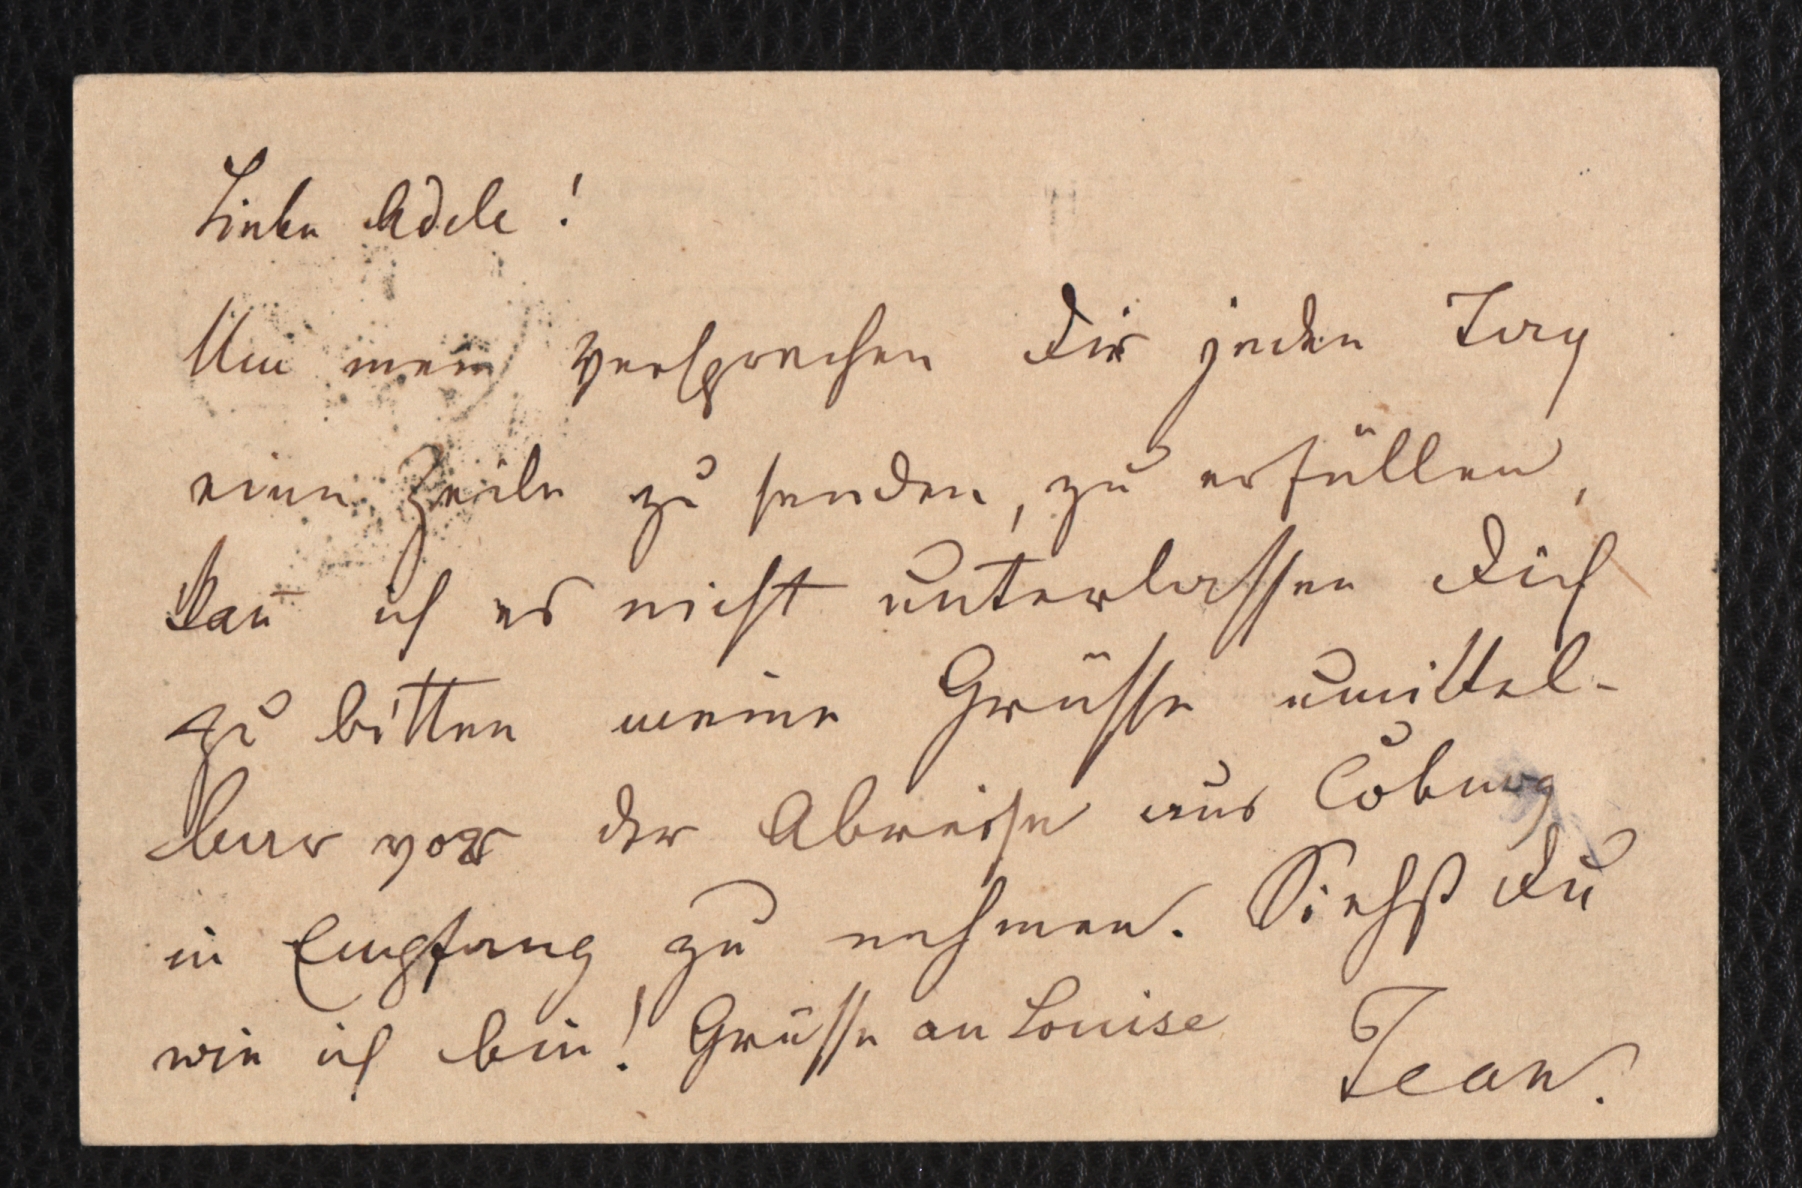 Liebe Adele!
Um mein Versprechen Dir jeden Tag
eine Zeile zu senden, zu erfüllen,
kan̄ ich es nicht unterlassen Dich
zu bitten meine Grüsse unmittel-
bar vor der Abreise aus Coburg
in Empfang zu nehmen. Siehst Du
wie ich bin! Grüsse an Louise
Jean.